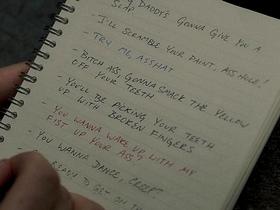 DADDY'S GONNA GIVE YOU A
SLAP
- I'LL SCRAMBLE YOUR
- TRY ME, ASSHAT
- BITCH ASS, GONNA SMACK THE YELLOW
OFF YOUR TEETH
- YOU'LL BE PICKING YOUR TEETH
UP WITH BROKEN FINGERS
- YOU WANNA WAKE UP WITH MY
FIST UP YOUR ASS?
- YOU WANNA DANCE,